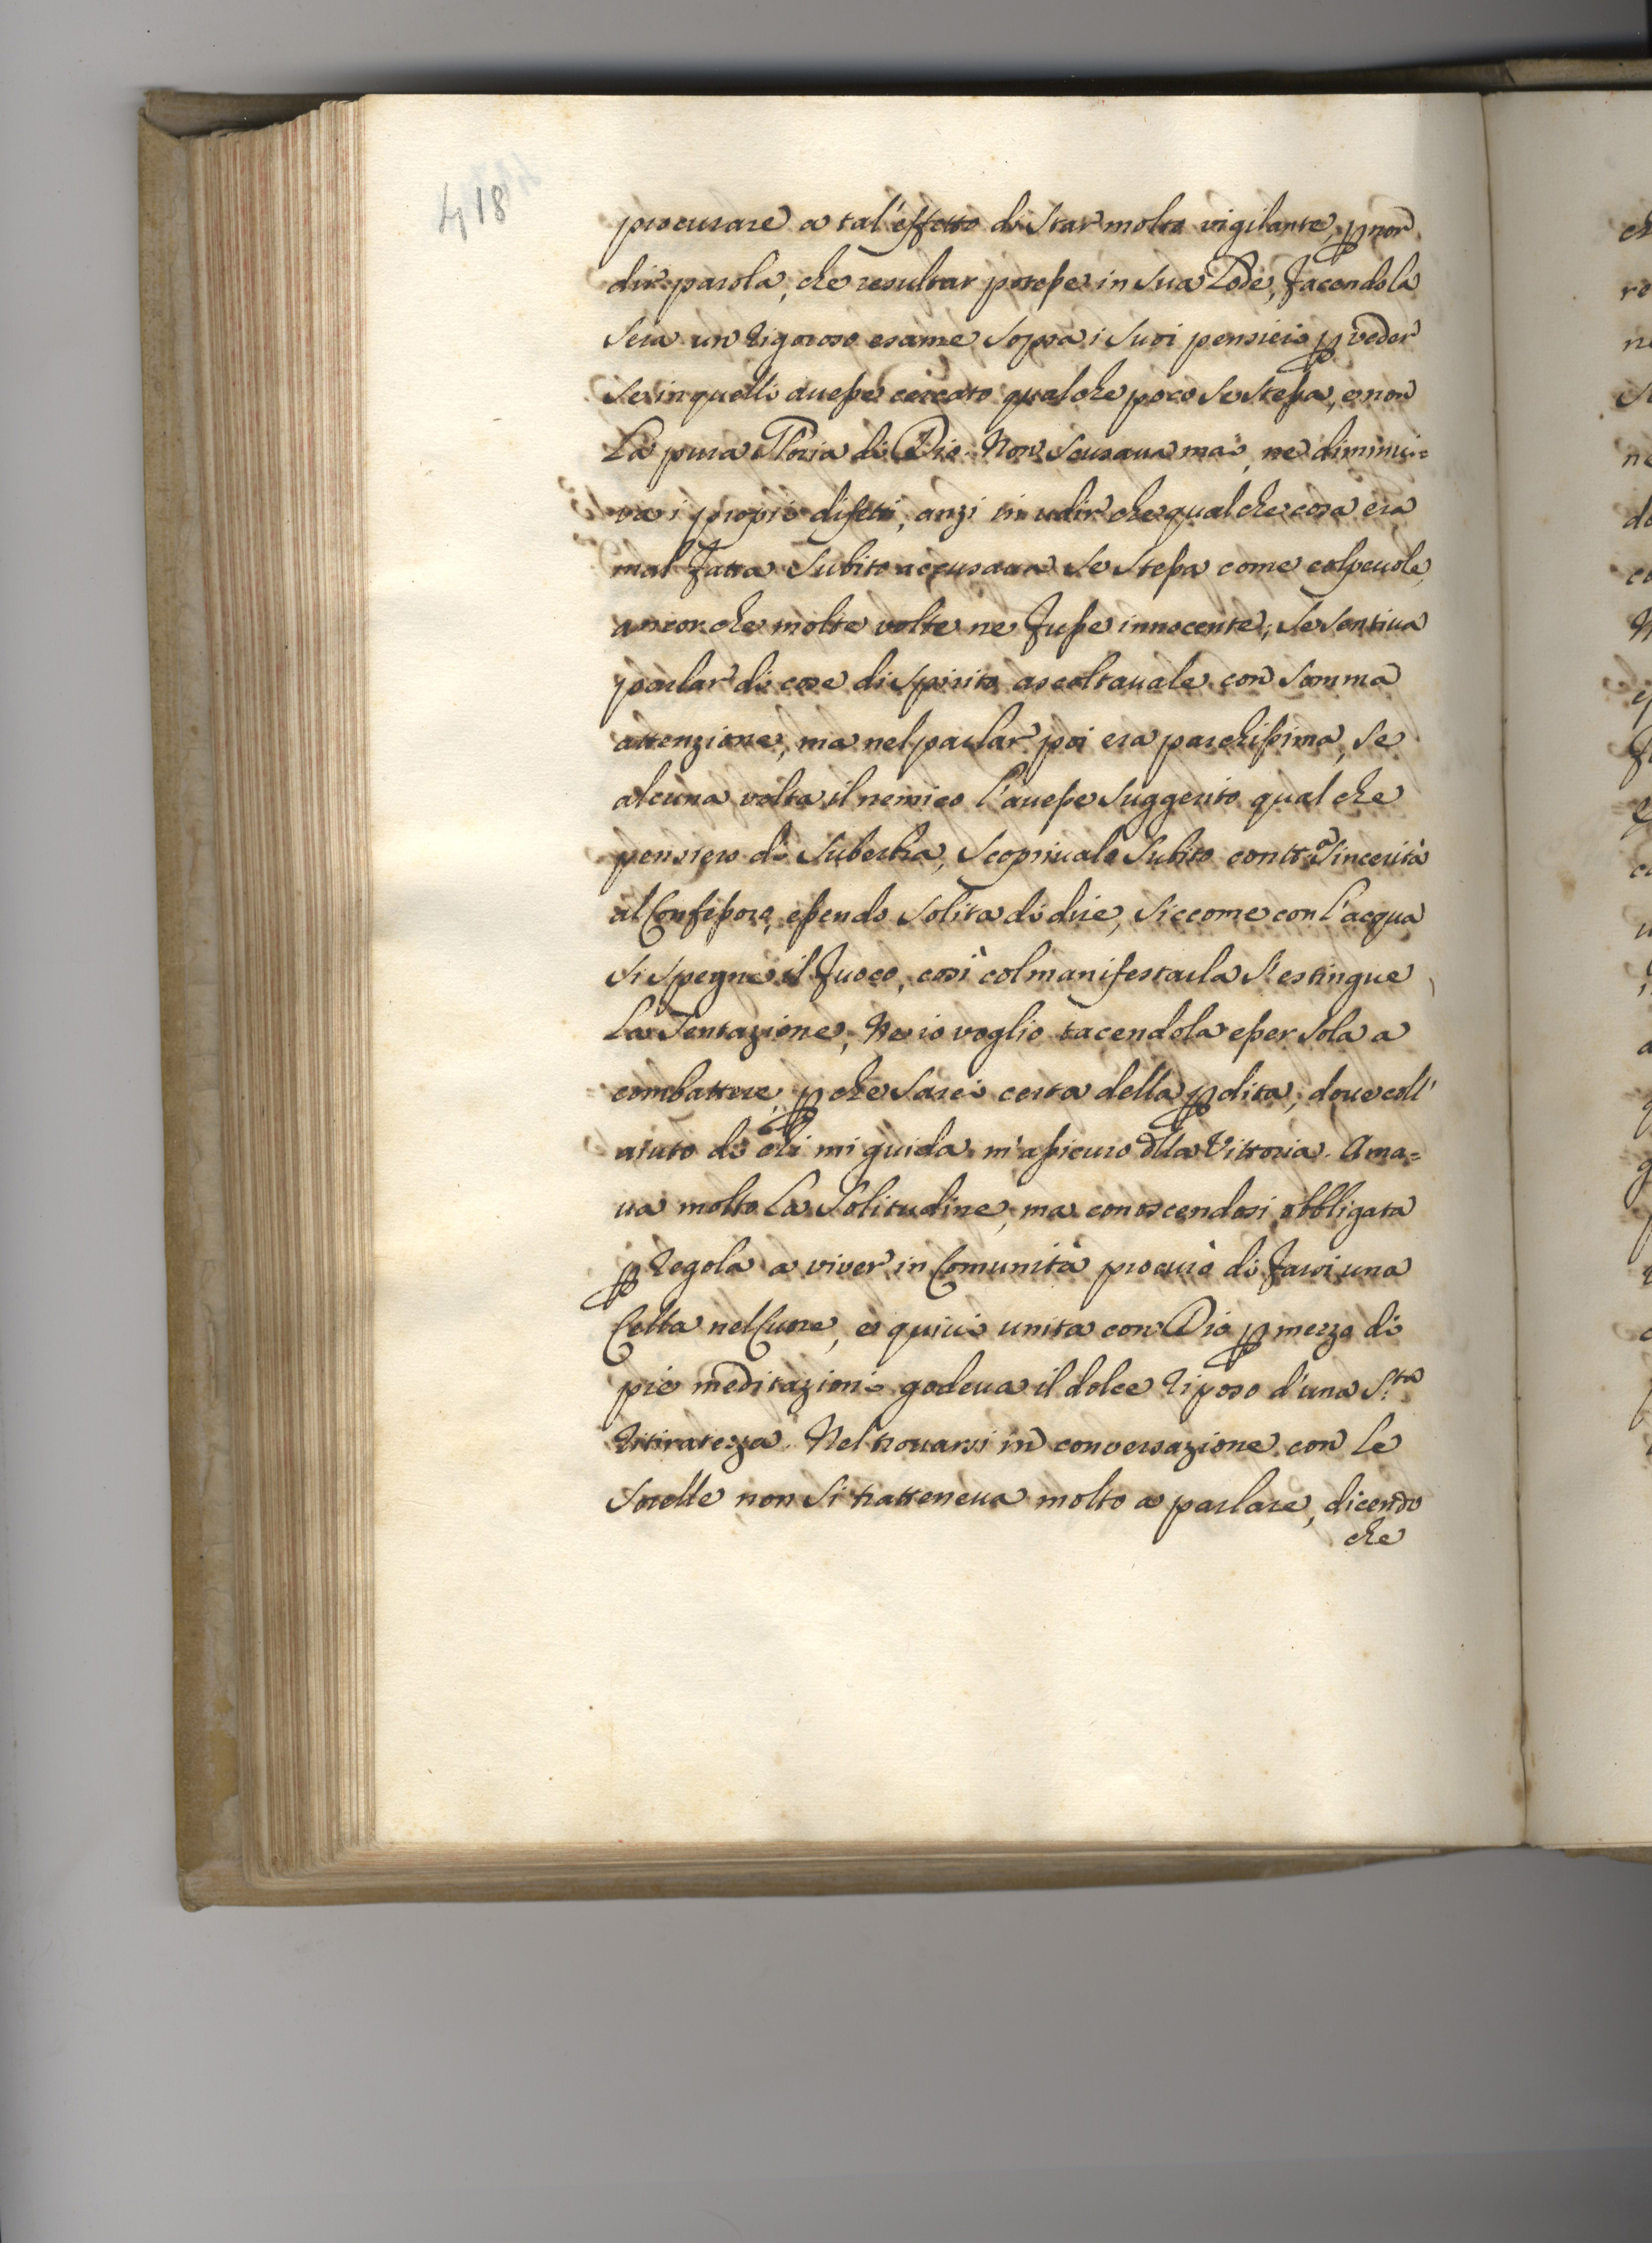 418
procurare a tal'effetto di star molto vigilante, ꝑ non
dir parola, che resultar potesse in sua Lode, facendo la
sera un rigoroso esame sopra i suoi pensieri ꝑ veder
se in quelli avesse cercato qualche poco se stessa, e non
La pura Gloria di Dio. Non scusava mai, ne diminui=
va i proprii difetti, anzi in udir che qualche cosa era
mal fatta subito accusava se stessa come colpevole,
ancorche molte volte ne fusse innocente; se sentiva
parlar di cose di spirito ascoltavale con somma
attenzione, ma nel parlar poi era parchissima, se
alcuna volta il nemico l'avesse suggerito qual che
pensiero di suberbia, scoprivalo subito con ttª sincerità
al Confessore, essendo solita di dire, siccome con l'acqua
si spegne il fuoco, così col manifestarla s'estingue
La Tentazione, Ne io voglio tacendola esser sola a
combattere, ꝑche sarei certa della ꝑdita, dove coll'
aiuto di chi mi guida m'assicuro dlla Vittoria. Ama=
va molto La Solitudine, ma conoscendosi obbligata
ꝑ regola a viver in Comunità procurò di farsi una
Cella nel Cuore, e quivi unita con Dio ꝑ mezzo di
pie meditazioni godeva il dolce riposo d'una S.ta
ritiratezza. Nel trovarsi in conversazione con le
sorelle non si tratteneva molto a parlare, dicendo
che